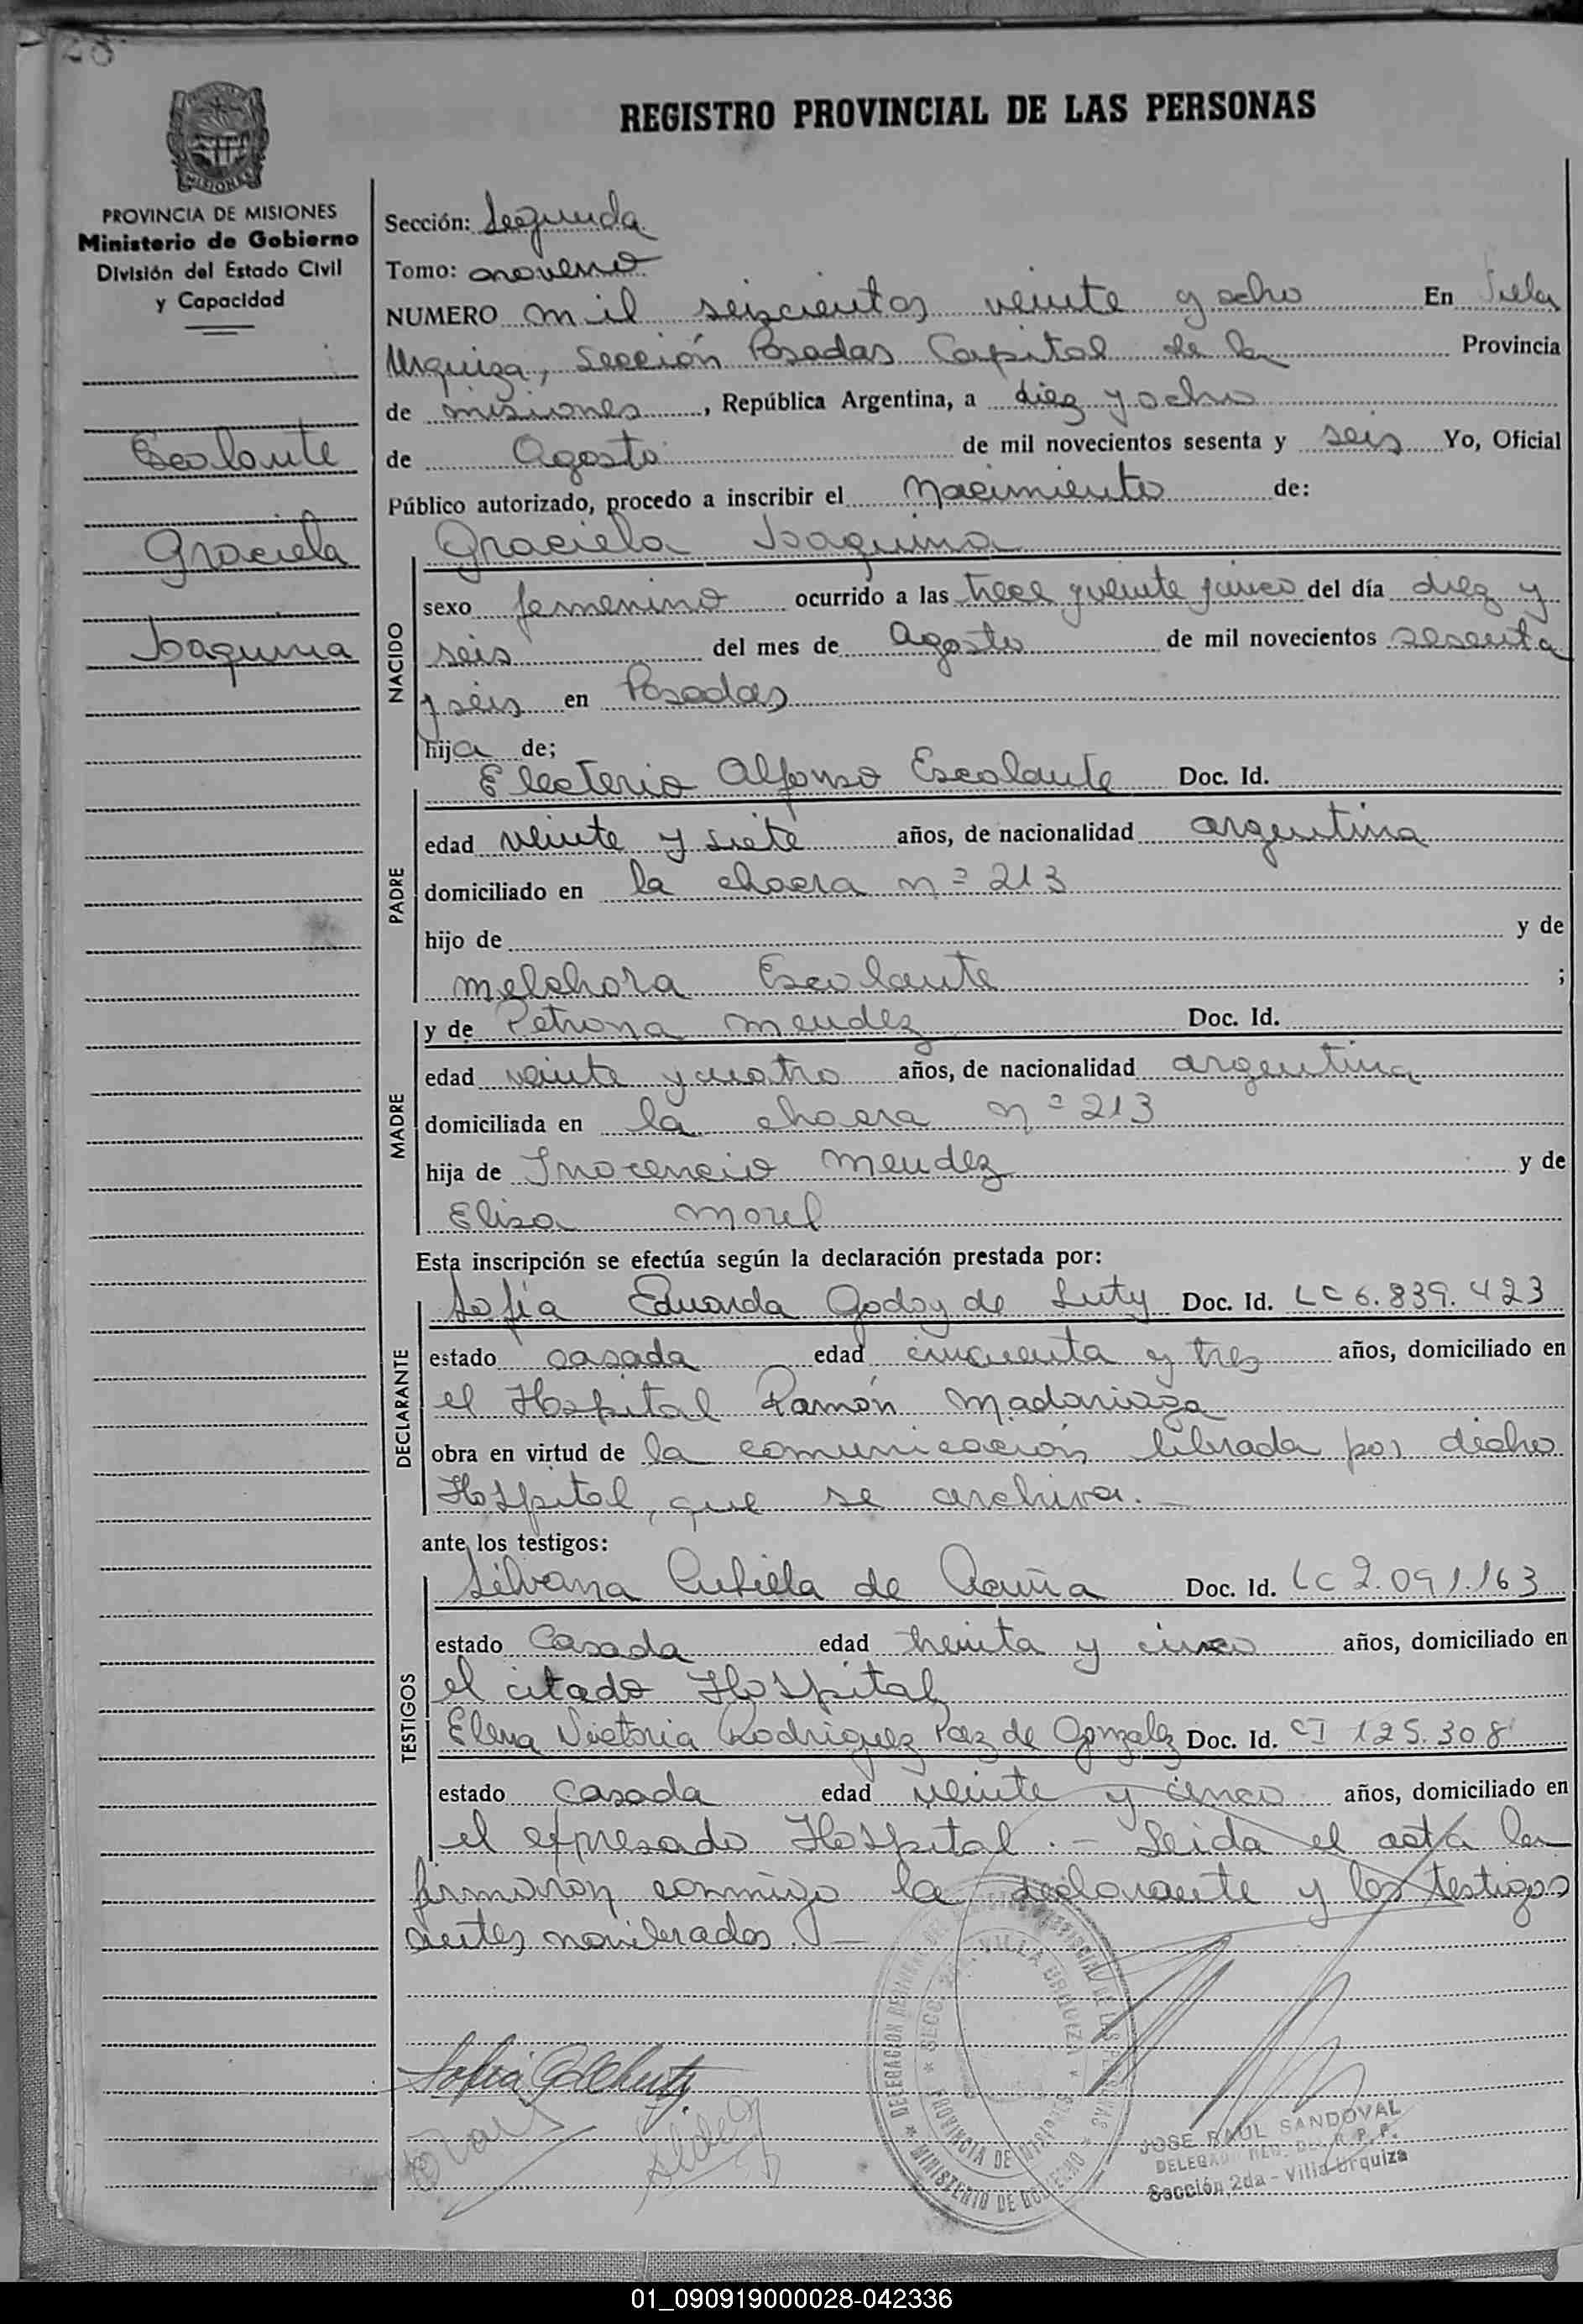 28
REGISTRO PROVINCIAL DE LAS PERSONAS
MISIONES
PROVINCIA DE MISIONES
Ministerio de Gobierno
División del Estado Civil
y Capacidad
Escalante
Graciela
Joaquina
Sección: Segunda
Tomo: noveno
NUMERO mil seiscientos veinte y ocho En Villa
Urquiza, Sección Posadas Capital de la Provincia
de misiones, República Argentina, a diez y ocho
de Agosto de mil novecientos sesenta y seis Yo, Oficial
Público autorizado, procedo a inscribir el Nacimiento de:
Graciela Joaquina
NACIDO
sexo femenino ocurrido a las trece y veinte y cinco del día diez y
seis del mes de Agosto de mil novecientos sesenta
y seis en Posadas
hija de;
PADRE
Eleoterio Alfonso Escalante Doc. Id.
edad veinte y siete años, de nacionalidad argentina
domiciliado en la chacra nº 213
hijo de y de
melchora Escalante ;
MADRE
y de Petrona mendez Doc. Id.
edad veinte y cuatro años, de nacionalidad argentina
domiciliada en la chacra nº 213
hija de Inocencio mendez y de
Elisa morel
Esta inscripción se efectúa según la declaración prestada por:
DECLARANTE
Sofía Eduarda Godoy de Luty Doc. Id. LC 6.839.423
estado casada edad cincuenta y tres años, domiciliado en
el Hospital Ramón Madariaga
obra en virtud de la comunicación librada por dicho
Hospital, que se archiva.—
ante los testigos:
TESTIGOS
Silvana Cubilla de Acuña Doc. Id. LC 2.091.163
estado Casada edad treinta y cinco años, domiciliado en
el citado Hospital
Elena Victoria Rodriguez Paez de Gonzalez Doc. Id. CI 125.308
estado casada edad veinte y cinco años, domiciliado en
el expresado Hospital.— Leida el acta la
firmaron conmigo la declarante y los testigos
antes nombrados.—
DELEGACION REGISTRO PROVINCIAL DE LAS PERSONAS
MINISTERIO DE GOBIERNO
SECC. 2da. VILLA URQUIZA
PROVINCIA DE MISIONES
JOSE RAUL SANDOVAL
DELEGADO REG. DEL R. P. P.
Sección 2da - Villa Urquiza
01_090919000028-042336